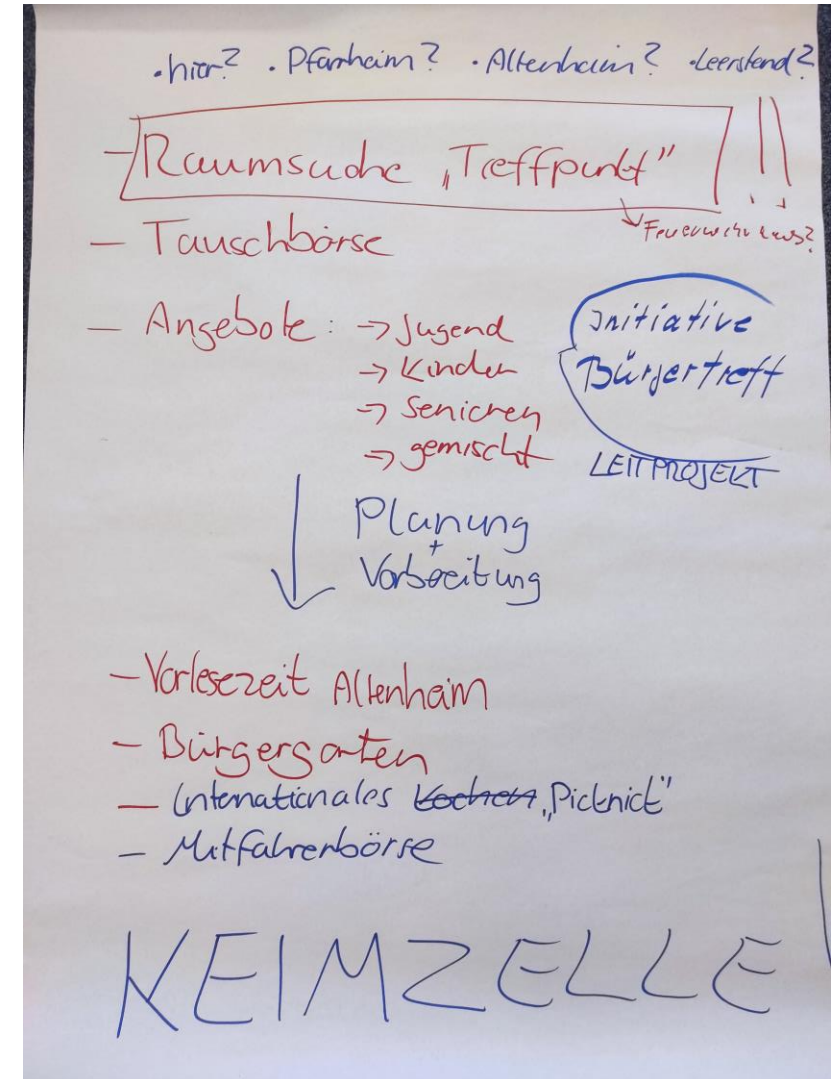 ·hier? ·Pfarrheim? ·Altenheim? ·Leerstand?
- Raumsuche „Treffpunkt" !!
→ Feuerwehrhaus?
- Tauschbörse
- Angebote: → Jugend
→ Kinder
→ Senioren
→ gemischt
Initiative
Bürgertreff
LEITPROJEKT
Planung
+
Vorbereitung
- Vorlesezeit Altenheim
- Bürgergarten
- Internationales Kochen „Picknick"
- Mitfahrerbörse
KEIMZELLE